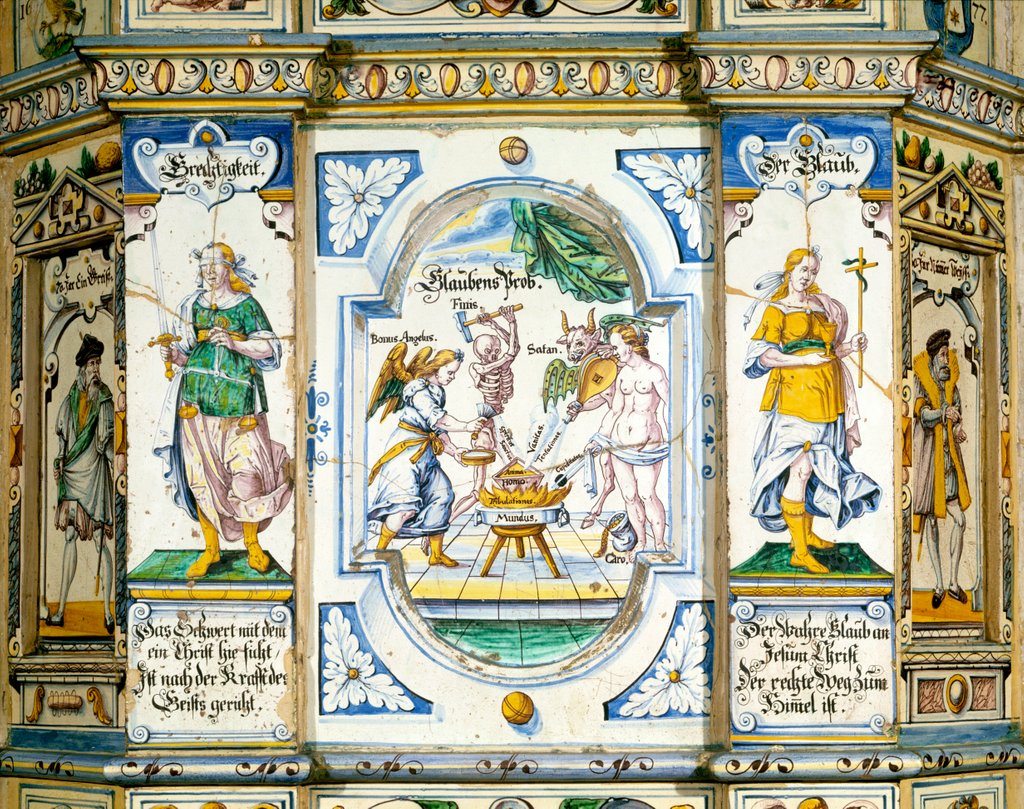 16
77.
Grechtigkeit.
Der Glaub.
Glaubens Prob.
Finis.
Bonus Angelus.
Satan.
Vanitas.
Anima
Homo
Tribulationis.
Mundus.
Caro.
Das Schwert mit dem
ein Christ hie ficht
Ist nach der Krafft des
Geists gericht.
Der Wahre Glaub an
Jesum Christ
Der rechte Weg Zum
Himel ist.